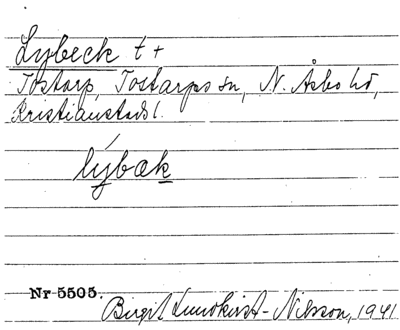 Lybeck t+
Tostarp, Tostarps sn, N. Åsbo hd,
Kristianstads l.
lýbæk
Nr 5505.
Birgit Lundkvist-Nilsson, 1941